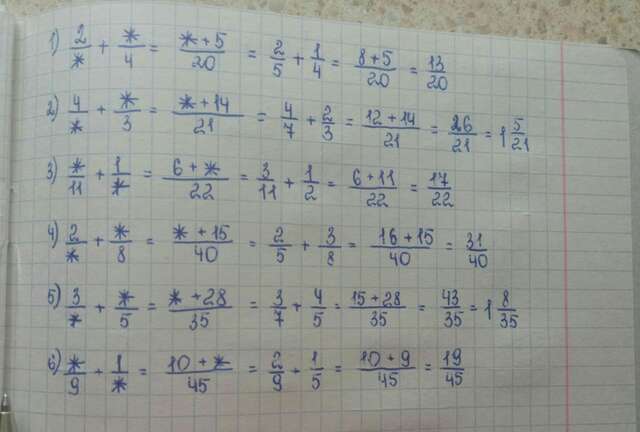 1) 2/* + */4 = (* + 5)/20 = 2/5 + 1/4 = (8 + 5)/20 = 13/20
2) 4/* + */3 = (* + 14)/21 = 4/7 + 2/3 = (12 + 14)/21 = 26/21 = 1 5/21
3) */11 + 1/* = (6 + *)/22 = 3/11 + 1/2 = (6 + 11)/22 = 17/22
4) 2/* + */8 = (* + 15)/40 = 2/5 + 3/8 = (16 + 15)/40 = 31/40
5) 3/* + */5 = (* + 28)/35 = 3/7 + 4/5 = (15 + 28)/35 = 43/35 = 1 8/35
6) */9 + 1/* = (10 + *)/45 = 2/9 + 1/5 = (10 + 9)/45 = 19/45